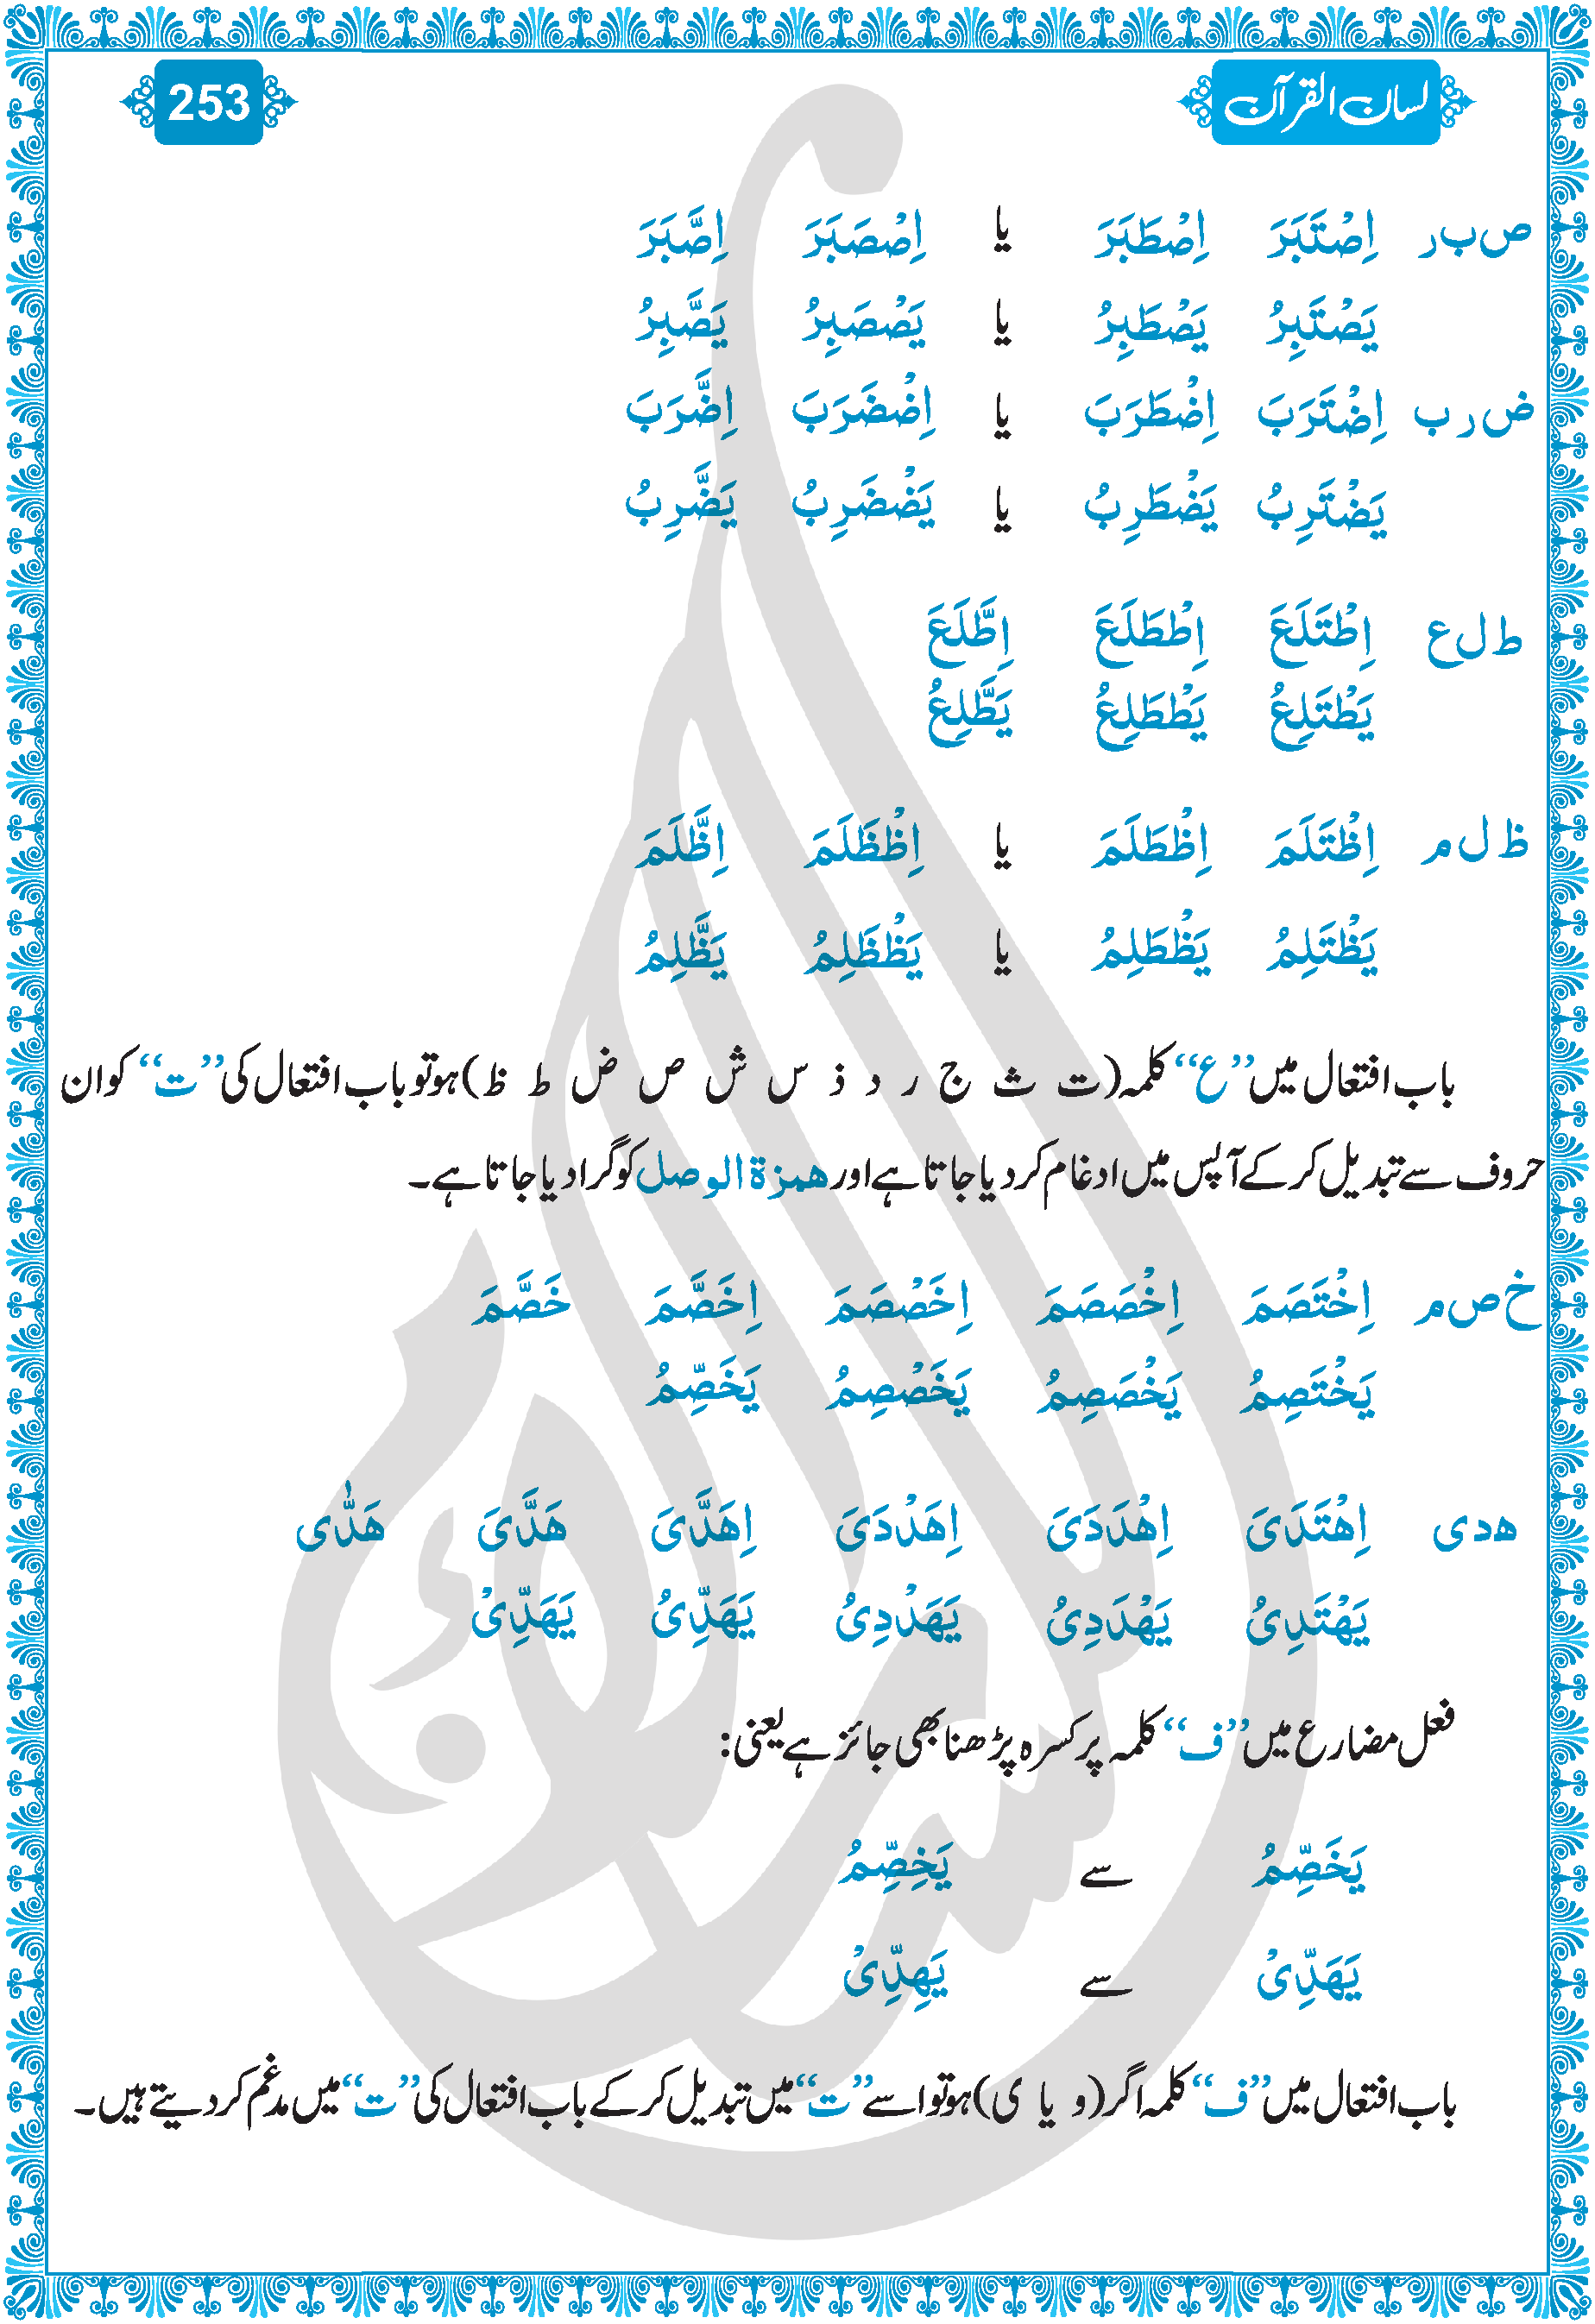 لسان القرآن 253
ص ب ر اِصْتَبَرَ اِصْطَبَرَ یا اِصْصَبَرَ اِصَّبَرَ
یَصْتَبِرُ یَصْطَبِرُ یا یَصْصَبِرُ یَصَّبِرُ
ض ر ب اِضْتَرَبَ اِضْطَرَبَ یا اِضْضَرَبَ اِضَّرَبَ
یَضْتَرِبُ یَضْطَرِبُ یا یَضْضَرِبُ یَضَّرِبُ
ط ل ع اِطْتَلَعَ اِطْطَلَعَ اِطَّلَعَ
یَطْتَلِعُ یَطْطَلِعُ یَطَّلِعُ
ظ ل م اِظْتَلَمَ اِظْطَلَمَ یا اِظْظَلَمَ اِظَّلَمَ
یَظْتَلِمُ یَظْطَلِمُ یا یَظْظَلِمُ یَظَّلِمُ
باب افتعال میں ”ع“ کلمہ (ت ث ج ر د ذ س ش ص ض ط ظ) ہو تو باب افتعال کی ”ت“ کو ان
حروف سے تبدیل کر کے آپس میں ادغام کر دیا جاتا ہے اور ھمزۃ الوصل کو گرا دیا جاتا ہے۔
خ ص م اِخْتَصَمَ اِخْصَصَمَ اِخَصْصَمَ اِخَصَّمَ خَصَّمَ
یَخْتَصِمُ یَخْصَصِمُ یَخَصْصِمُ یَخَصِّمُ
ھ د ی اِھْتَدَیَ اِھْدَدَیَ اِھَدْدَیَ اِھَدَّیَ ھَدَّیَ ھَدّٰی
یَھْتَدِیُ یَھْدَدِیُ یَھَدْدِیُ یَھَدِّیُ یَھَدِّیْ
فعل مضارع میں ”ف“ کلمہ پر کسرہ پڑھنا بھی جائز ہے یعنی:
یَخَصِّمُ سے یَخِصِّمُ
یَھَدِّیْ سے یَھِدِّیْ
باب افتعال میں ”ف“ کلمہ اگر (و یا ی) ہو تو اسے ”ت“ میں تبدیل کر کے باب افتعال کی ”ت“ میں مدغم کر دیتے ہیں۔